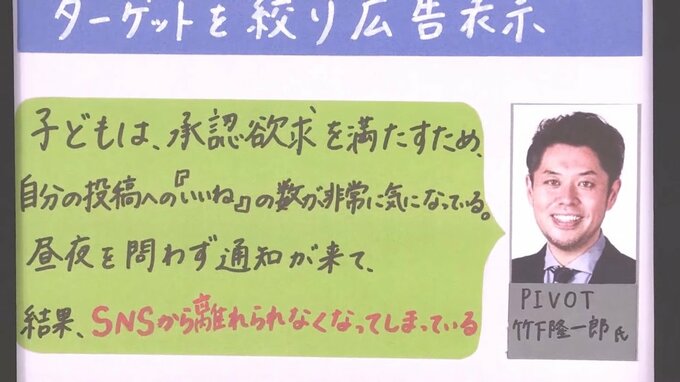 ターゲットを絞り広告表示
子どもは、承認欲求を満たすため、
自分の投稿への『いいね』の数が非常に気になっている。
昼夜を問わず通知が来て、
結果、SNSから離れられなくなってしまっている
PIVOT
竹下隆一郎氏